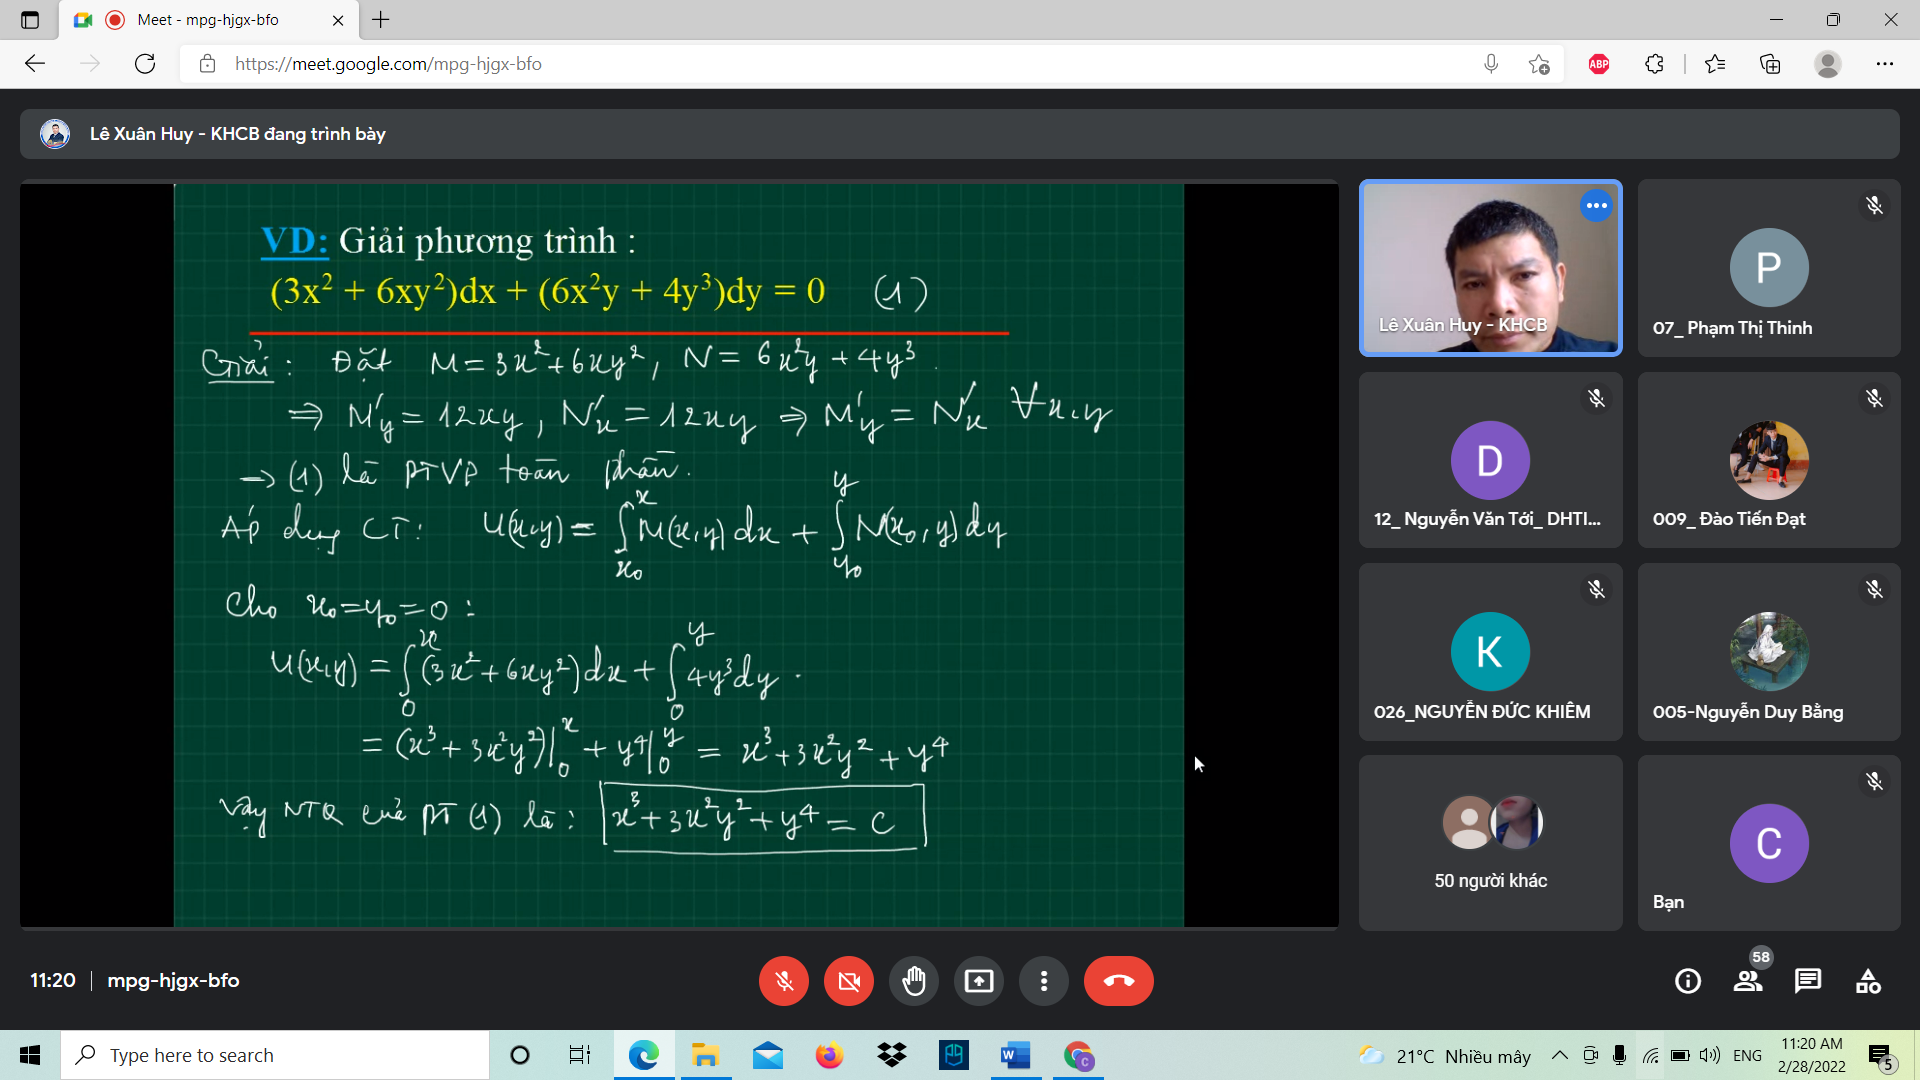 Meet - mpg-hjgx-bfo
https://meet.google.com/mpg-hjgx-bfo
ABP
Lê Xuân Huy - KHCB đang trình bày
VD: Giải phương trình :
(3x² + 6xy²)dx + (6x²y + 4y³)dy = 0 (1)
Giải: Đặt M = 3x² + 6xy², N = 6x²y + 4y³.
⇒ M'y = 12xy, N'x = 12xy ⇒ M'y = N'x ∀x,y
→ (1) là PTVP toàn phần.
Áp dụng CT: U(x,y) = ∫_{x₀}^{x} M(x,y)dx + ∫_{y₀}^{y} N(x₀,y)dy
Cho x₀=y₀=0:
U(x,y) = ∫_{0}^{x} (3x²+6xy²)dx + ∫_{0}^{y} 4y³dy.
= (x³ + 3x²y²)|_{0}^{x} + y⁴|_{0}^{y} = x³+3x²y²+y⁴
Vậy NTQ của PT (1) là: x³+3x²y²+y⁴ = C
Lê Xuân Huy - KHCB
P
07_ Phạm Thị Thinh
D
12_ Nguyễn Văn Tới_ DHTI...
009_ Đào Tiến Đạt
K
026_NGUYỄN ĐỨC KHIÊM
005-Nguyễn Duy Bằng
50 người khác
C
Bạn
11:20 | mpg-hjgx-bfo
58
Type here to search
W
C
21°C Nhiều mây
ENG
11:20 AM
2/28/2022
5